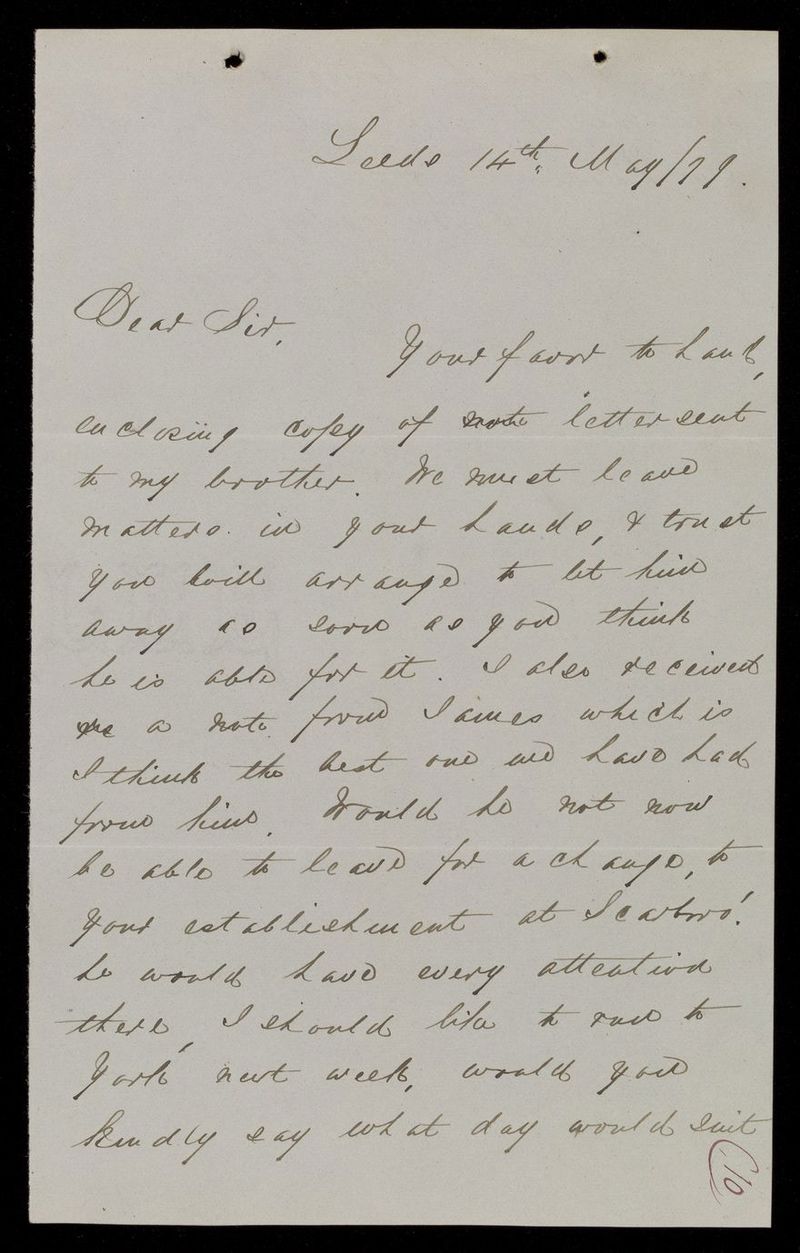 Leeds 14th May/79.
Dear Sir,
Your favor to hand,
enclosing copy of note letter sent
to my brother. We must leave
matters in your hands, & trust
you will arrange to let him
away as soon as you think
he is able for it. I also received
a note from James which is
I think the best one we have had
from him. Would he not now
be able to leave for a change, to
your establishment at Scarbro'.
he would have every attention
there, I should like to run to
York next week, would you
kindly say what day would suit
10